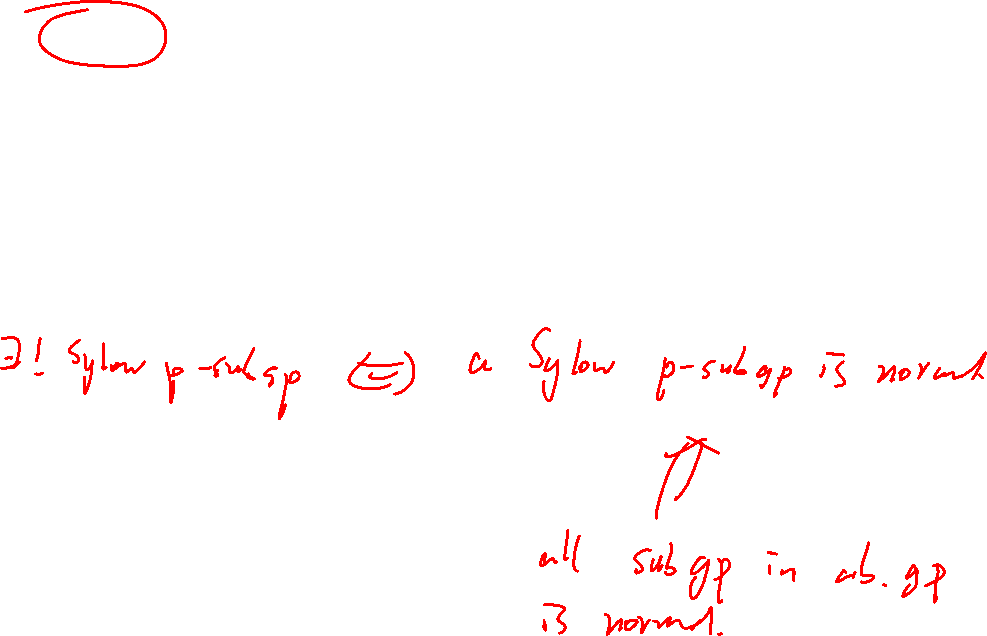 ∃! Sylow p-subgp ⟺ a Sylow p-subgp is normal
⇑
all subgp in ab. gp
is normal.